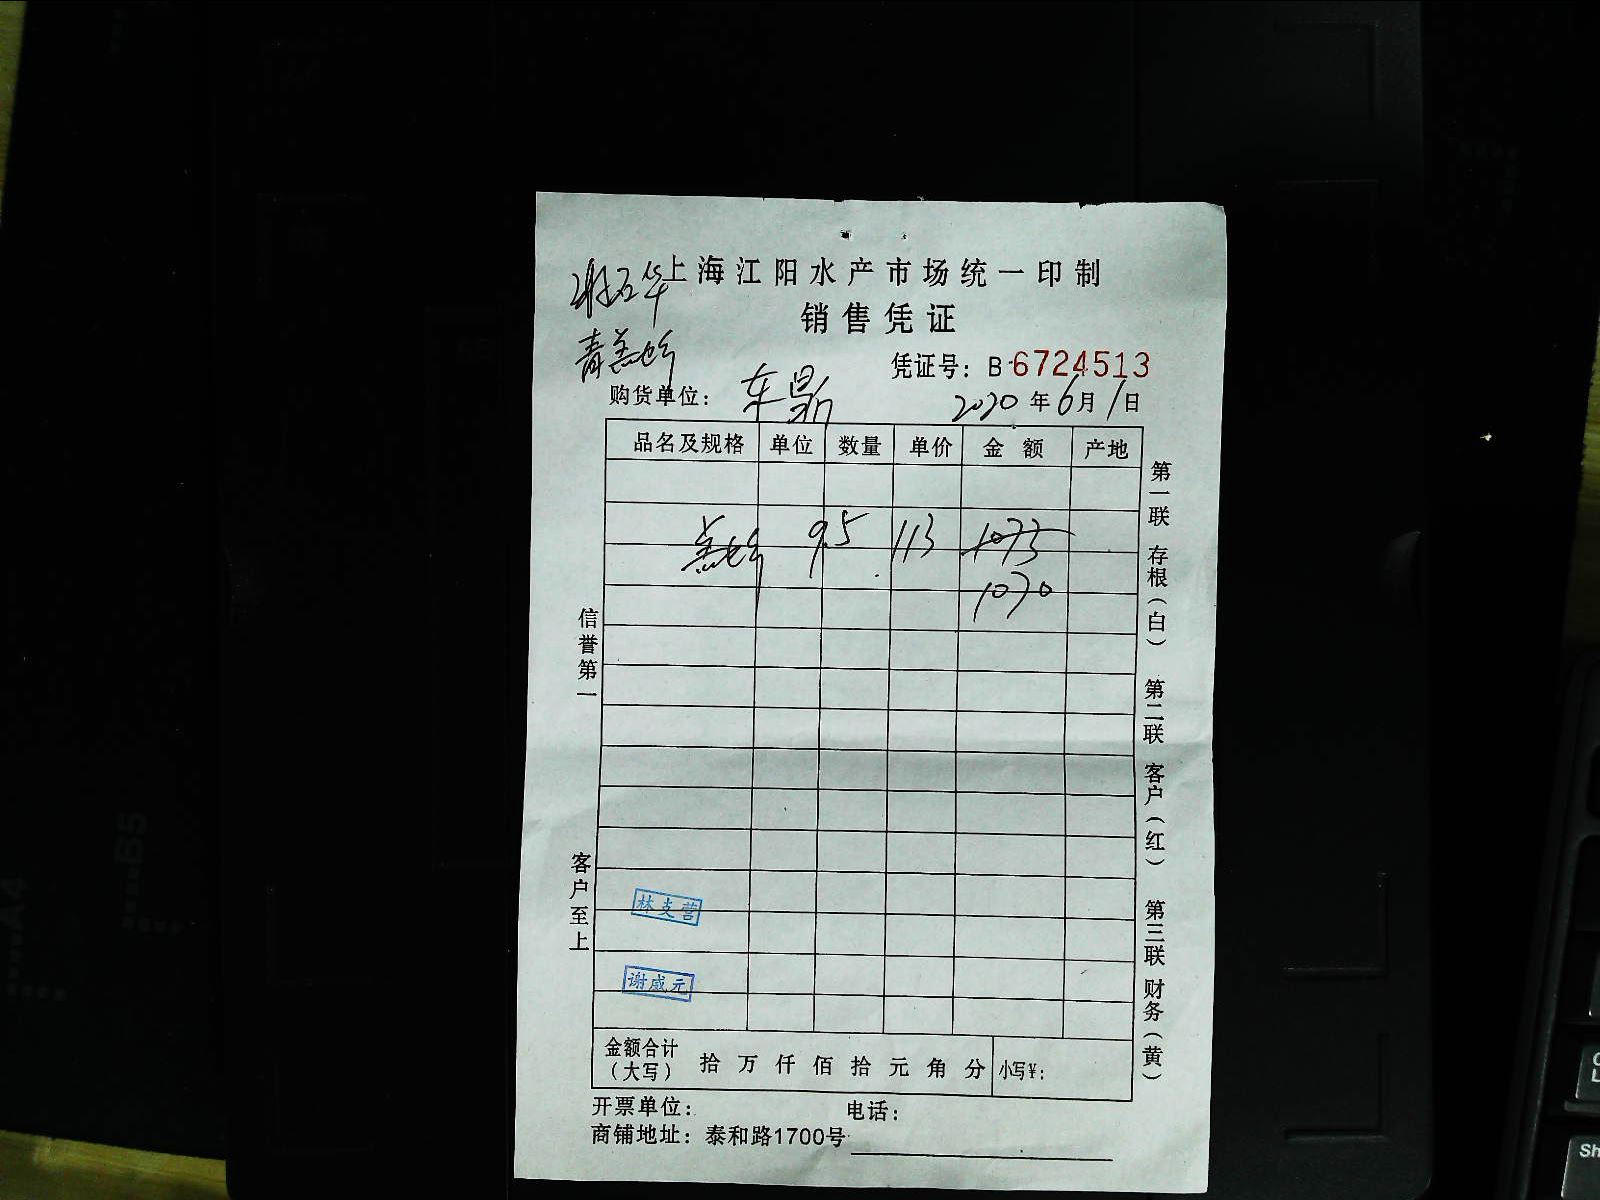 上海江阳水产市场统一印制
销售凭证
凭证号: B 6724513
购货单位: 东鼎
2020 年 6 月 1 日
品名及规格 单位 数量 单价 金额 产地
9.5 113 1073
1070
信誉第一
客户至上
第一联 存根（白） 第二联 客户（红） 第三联 财务（黄）
林支营
谢威元
金额合计（大写） 拾 万 仟 佰 拾 元 角 分 小写¥:
开票单位: 电话:
商铺地址: 泰和路1700号
B5
A4